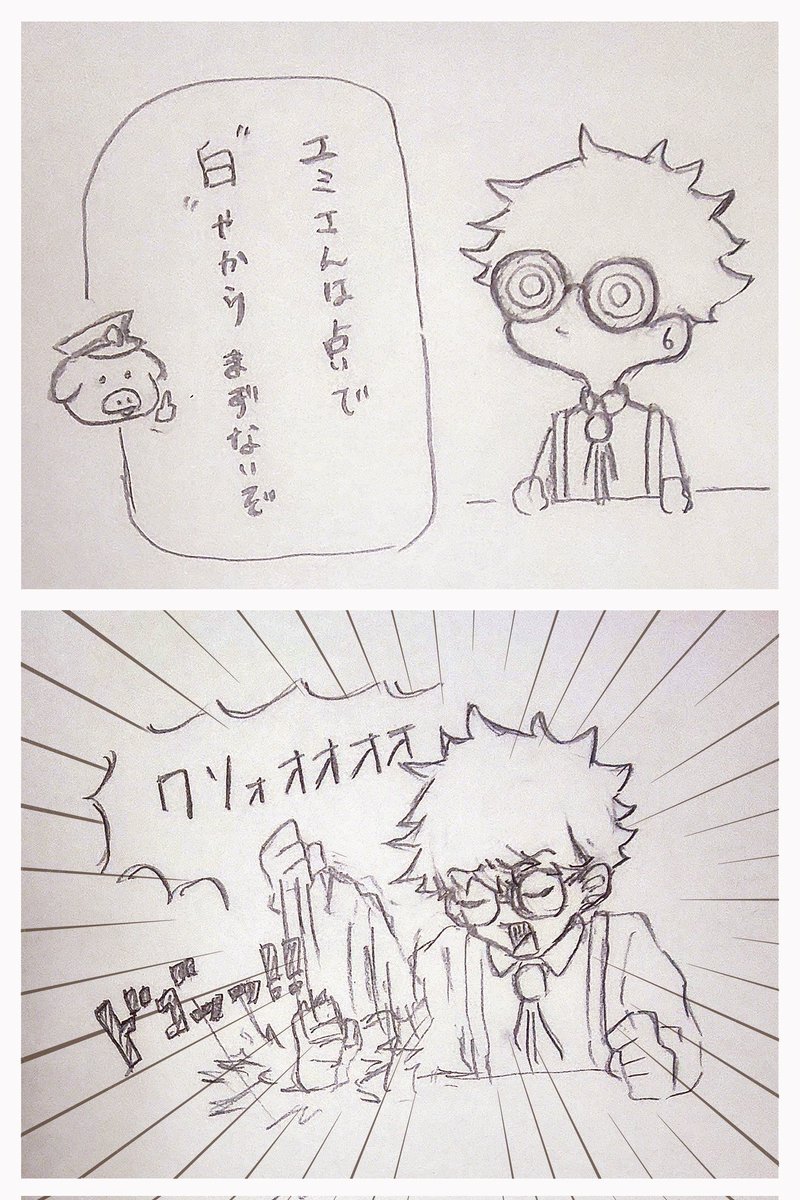 エミさんは占いで
"白"やからまずないぞ
クソォオオオオ
ドゴッッ!!